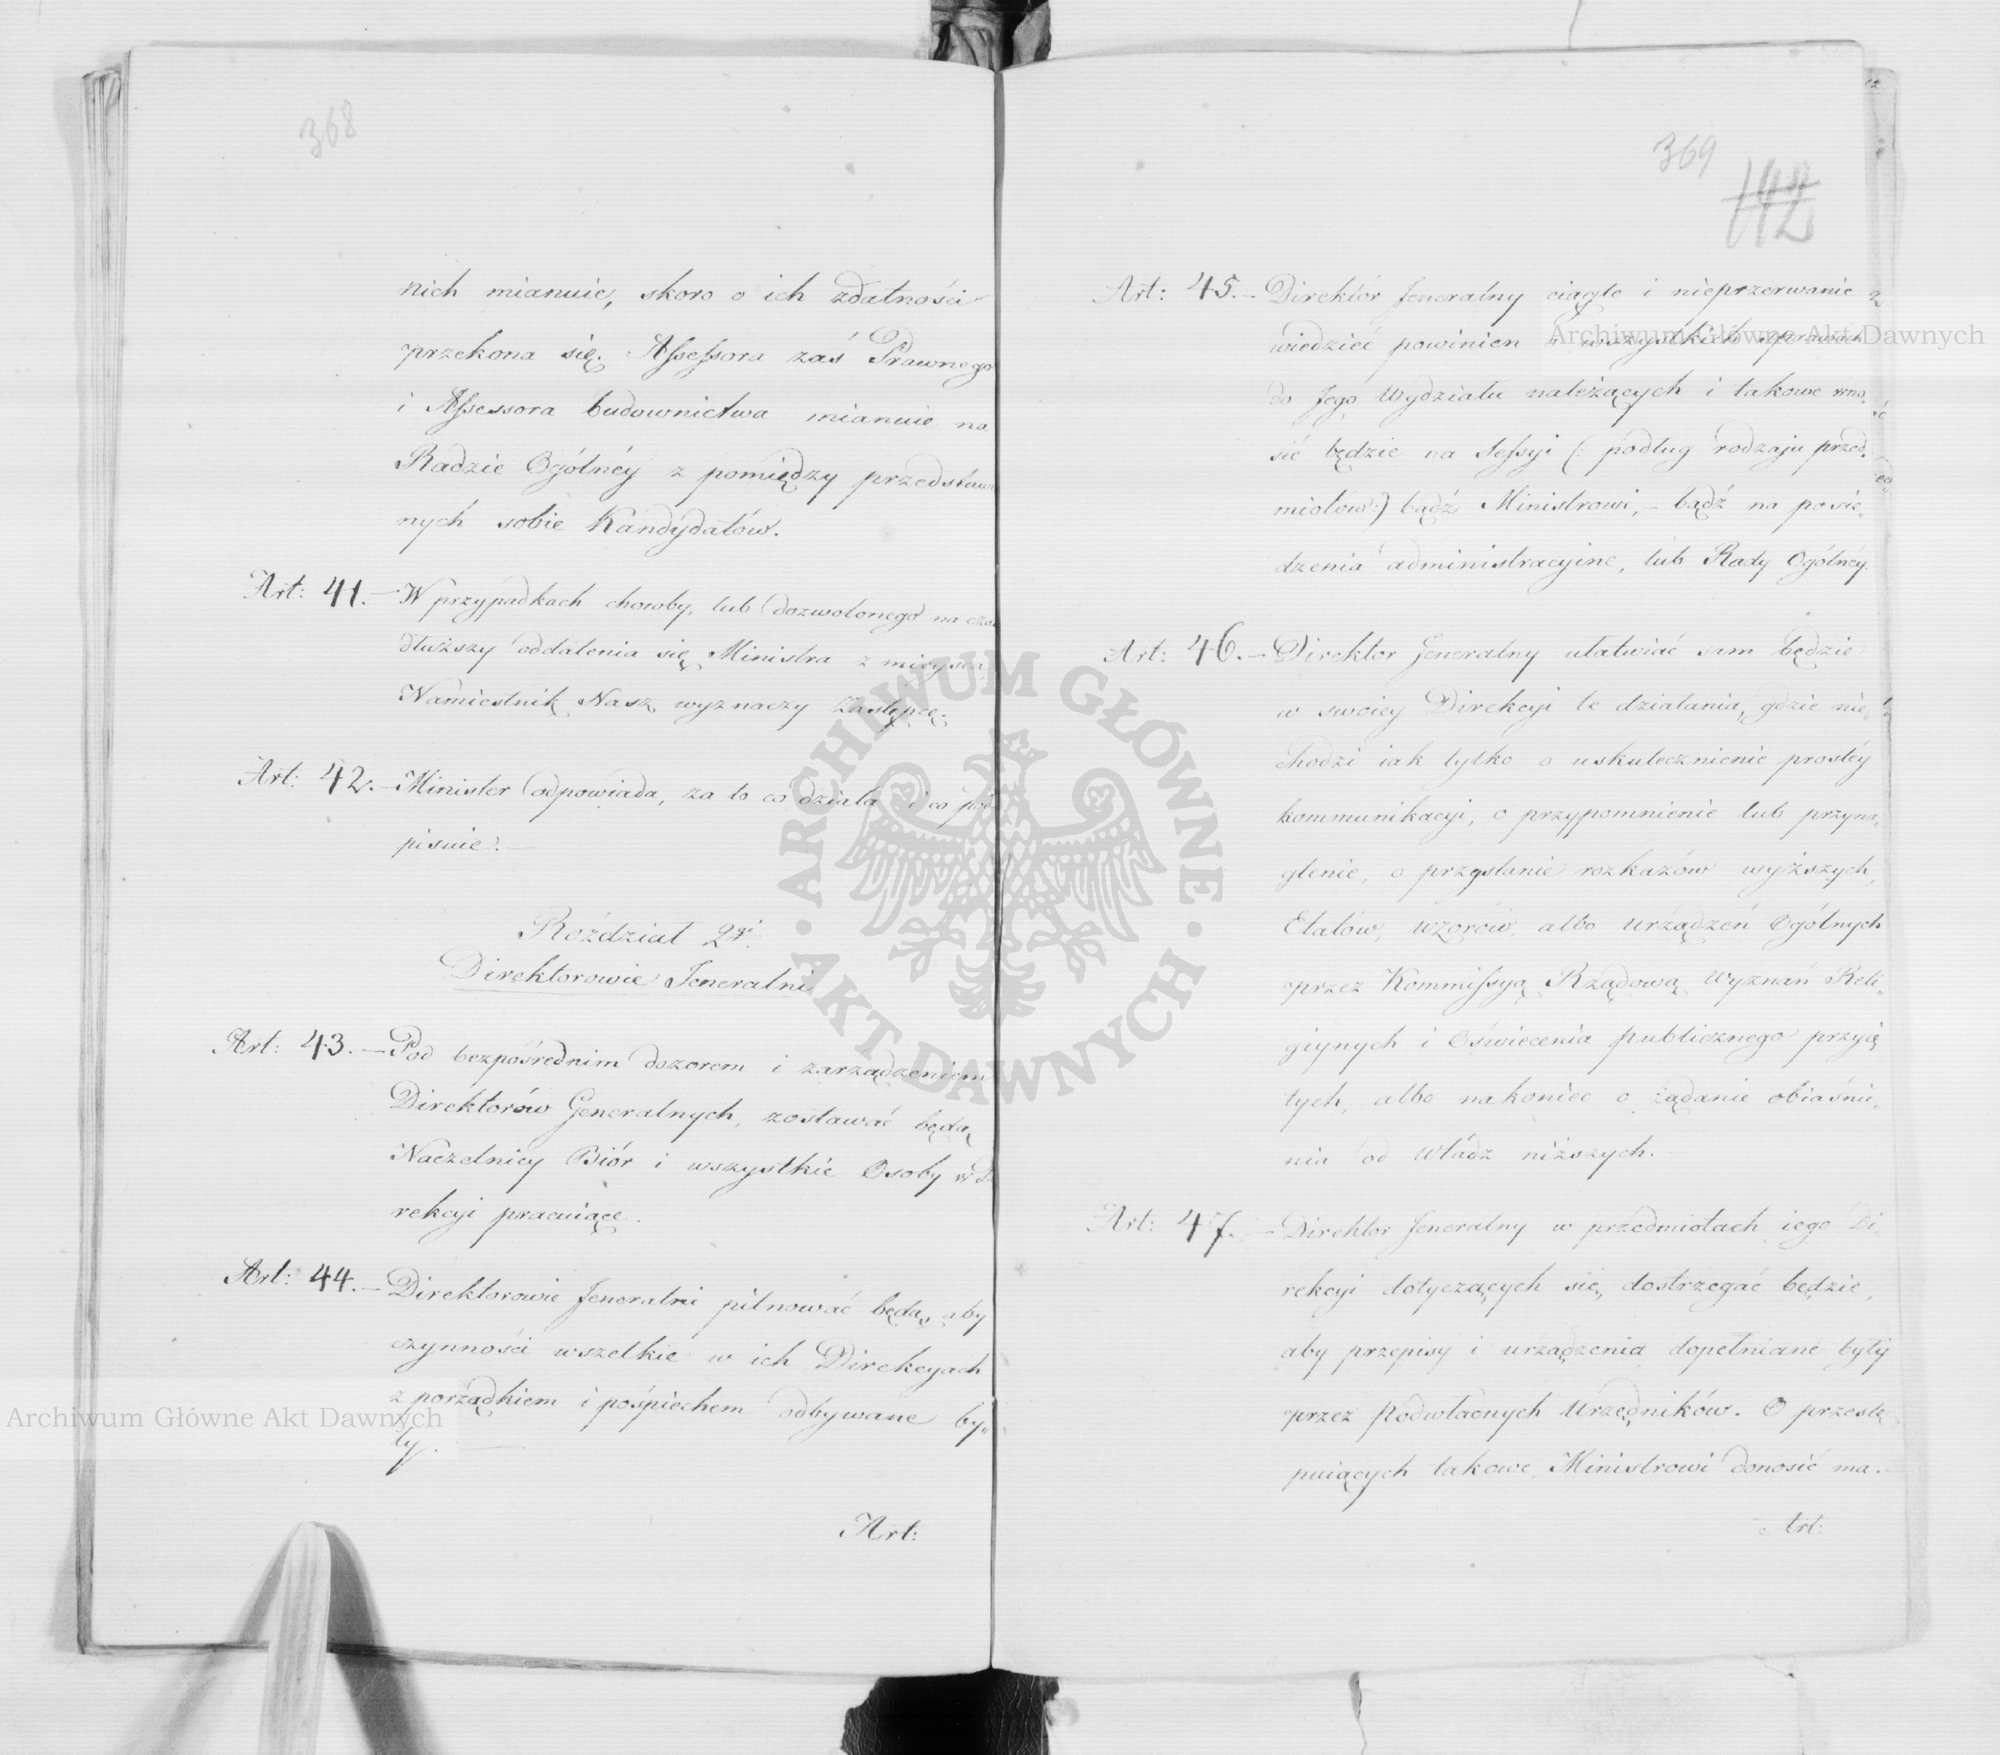 368
nich mianuie, skoro o ich zdatności
przekona się. Assessora zaś Prawnego
i Assessora budownictwa mianuie na
Radzie Ogólnéy z pomiędzy przedstaw
nych sobie Kandydatów.
Art: 41. – W przypadkach choroby, lub dozwolonego na
dłuższy oddalenia się Ministra z mieysca,
Namiestnik Nasz wyznaczy Zastępcę.
Art: 42. – Minister odpowiada, za to co działa i co pod
pisuie. –
Roździał 2gi.
Direktorowie Jeneralni
Art: 43. – Pod bezpośrednim dozorem i zarządzeniem
Direktorów Generalnych, zostawać będą
Naczelnicy Biór i wszystkie Osoby w Di
rekcyi pracuiące.
Art: 44. – Direktorowie Jeneralni pilnować będą, aby
czynności wszelkie w ich Direkcyach
z porządkiem i pośpiechem odbywane by„
ły. –
Art:
369
142
Art: 45. – Direktór Jeneralny ciągle i nieprzerwanie
wiedzieć powinien o wszystkich sprawach
do Jego Wydziału należących i takowe wno„
sić będzie na Sessyi (: podług rodzaju przed„
miotów:) bądź Ministrowi, – bądź na posie„
dzenia administracyine, lub Rady Ogólnéy.
Art: 46. – Direktor Jeneralny ułatwiać sam będzie
w swoiey Direkcyi te działania, gdzie nie„
chodzi iak tylko o uskutecznienie prostéy
kommunikacyi, o przypomnienie lub przyna„
glenie, o przysłanie rozkazów wyższych,
Etatów, wzorów, albo urządzeń Ogólnych
przez Kommissyą Rządową Wyznań Reli„
giynych i Oświecenia publicznego przyię
tych, albo nakoniec o żądanie obiaśnie„
nia od Władz niższych. –
Art: 47. – Direktor Jeneralny w przedmiotach iego Di„
rekcyi dotyczących się, dostrzegać będzie,
aby przepisy i urządzenia dopełniane były
przez Podwładnych Urzędników. O przestę
puiących takowe, Ministrowi donosić ma. –
Art:
Archiwum Główne Akt Dawnych
Archiwum Główne Akt Dawnych
ARCHIWUM GŁÓWNE · AKT DAWNYCH ·